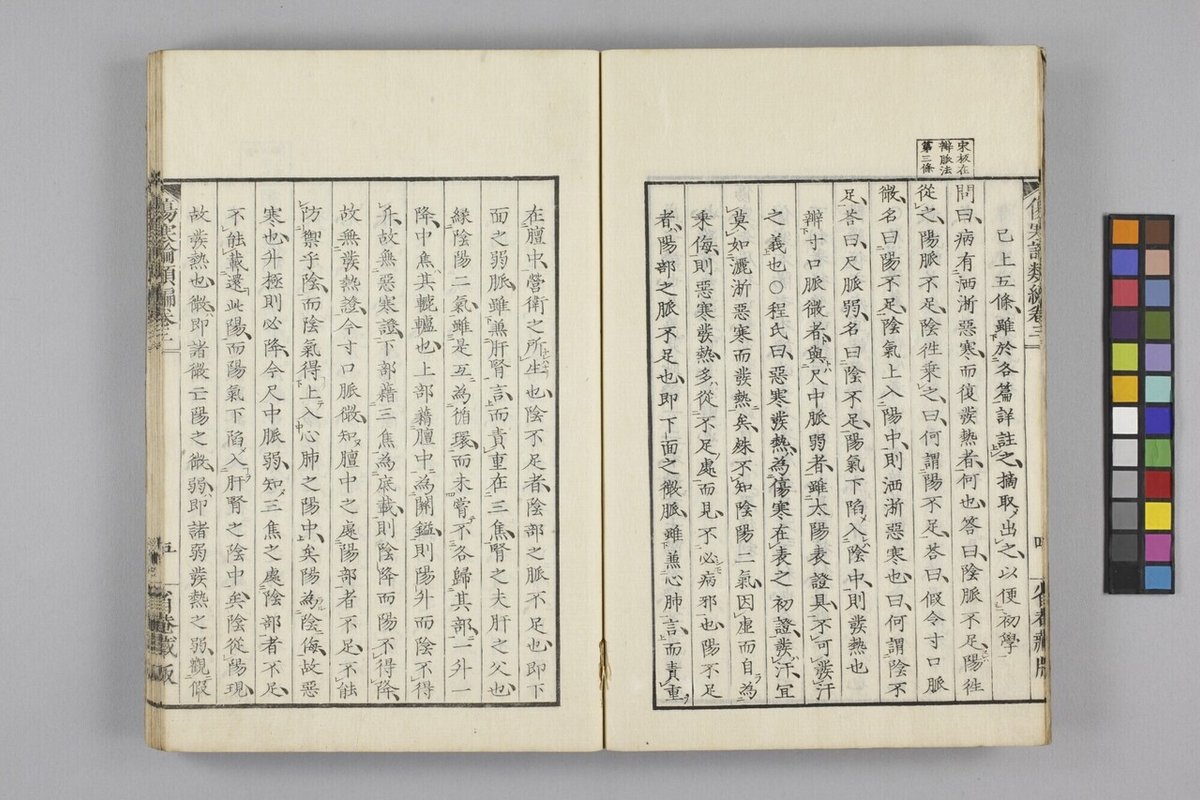 宋板在
辨脉法
第二條
傷寒論類編卷三
省春藏版
已上五條雖於各篇詳註之摘取出之以便初學
問曰病有洒淅惡寒而復發熱者何也答曰陰脈不足陽徃
從之陽脈不足陰徃乗之曰何謂陽不足荅曰假令寸口脈
微名曰陽不足陰氣上入陽中則洒淅惡寒也曰何謂陰不
足荅曰尺脈弱名曰陰不足陽氣下陷入陰中則發熱也
辨寸口脈微者與尺中脈弱者雖太陽表證具不可發汗
之義也〇程氏曰惡寒發熱為傷寒在表之初證發汗冝
莫如灑淅惡寒而發熱矣殊不知陰陽二氣因虛而自為
乗侮則惡寒發熱多從不足處而見不必病邪也陽不足
者陽部之脈不足也即下面之微脈雖兼心肺言而責重
在膻中營衛之所生也陰不足者陰部之脈不足也即下
面之弱脈雖兼肝腎言而責重在三焦腎之夫肝之父也
緣陰陽二氣雖是互為循環而未嘗不各歸其部一升一
降中焦其轆轤也上部藉膻中為關鎰則陽升而陰不得
升故無惡寒證下部藉三焦為底載則陰降而陽不得降
故無發熱證今寸口脈微知膻中之處陽部者不足不能
防禦乎陰而陰氣得上入心肺之陽中矣陽為陰侮故惡
寒也升極則必降今尺中脈弱知三焦之處陰部者不足
不能載還此陽而陽氣下陷入肝腎之陰中矣陰從陽現
故發熱也微即諸微亡陽之微弱即諸弱發熱之弱觀假
傷寒論類編卷三
五
省春藏版